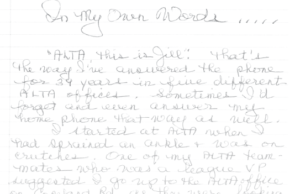 In My Own Words .....
"ALTA this is Jill". That's
the way I've answered the phone
for 24 years in five different
ALTA offices. Sometimes I'd
forget and even answer my
home phone that way as well.
I started at ALTA when I
had sprained an ankle & was on
crutches. One of my ALTA team-
mates who was a league VP
suggested I go up to the ALTA office